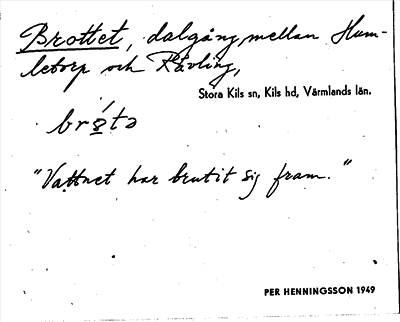 Brottet, dalgång mellan Hum-
letorp och Råvling,
Stora Kils sn, Kils hd, Värmlands län.
brǻ̱tə
"Vattnet har brutit sig fram."
PER HENNINGSSON 1949